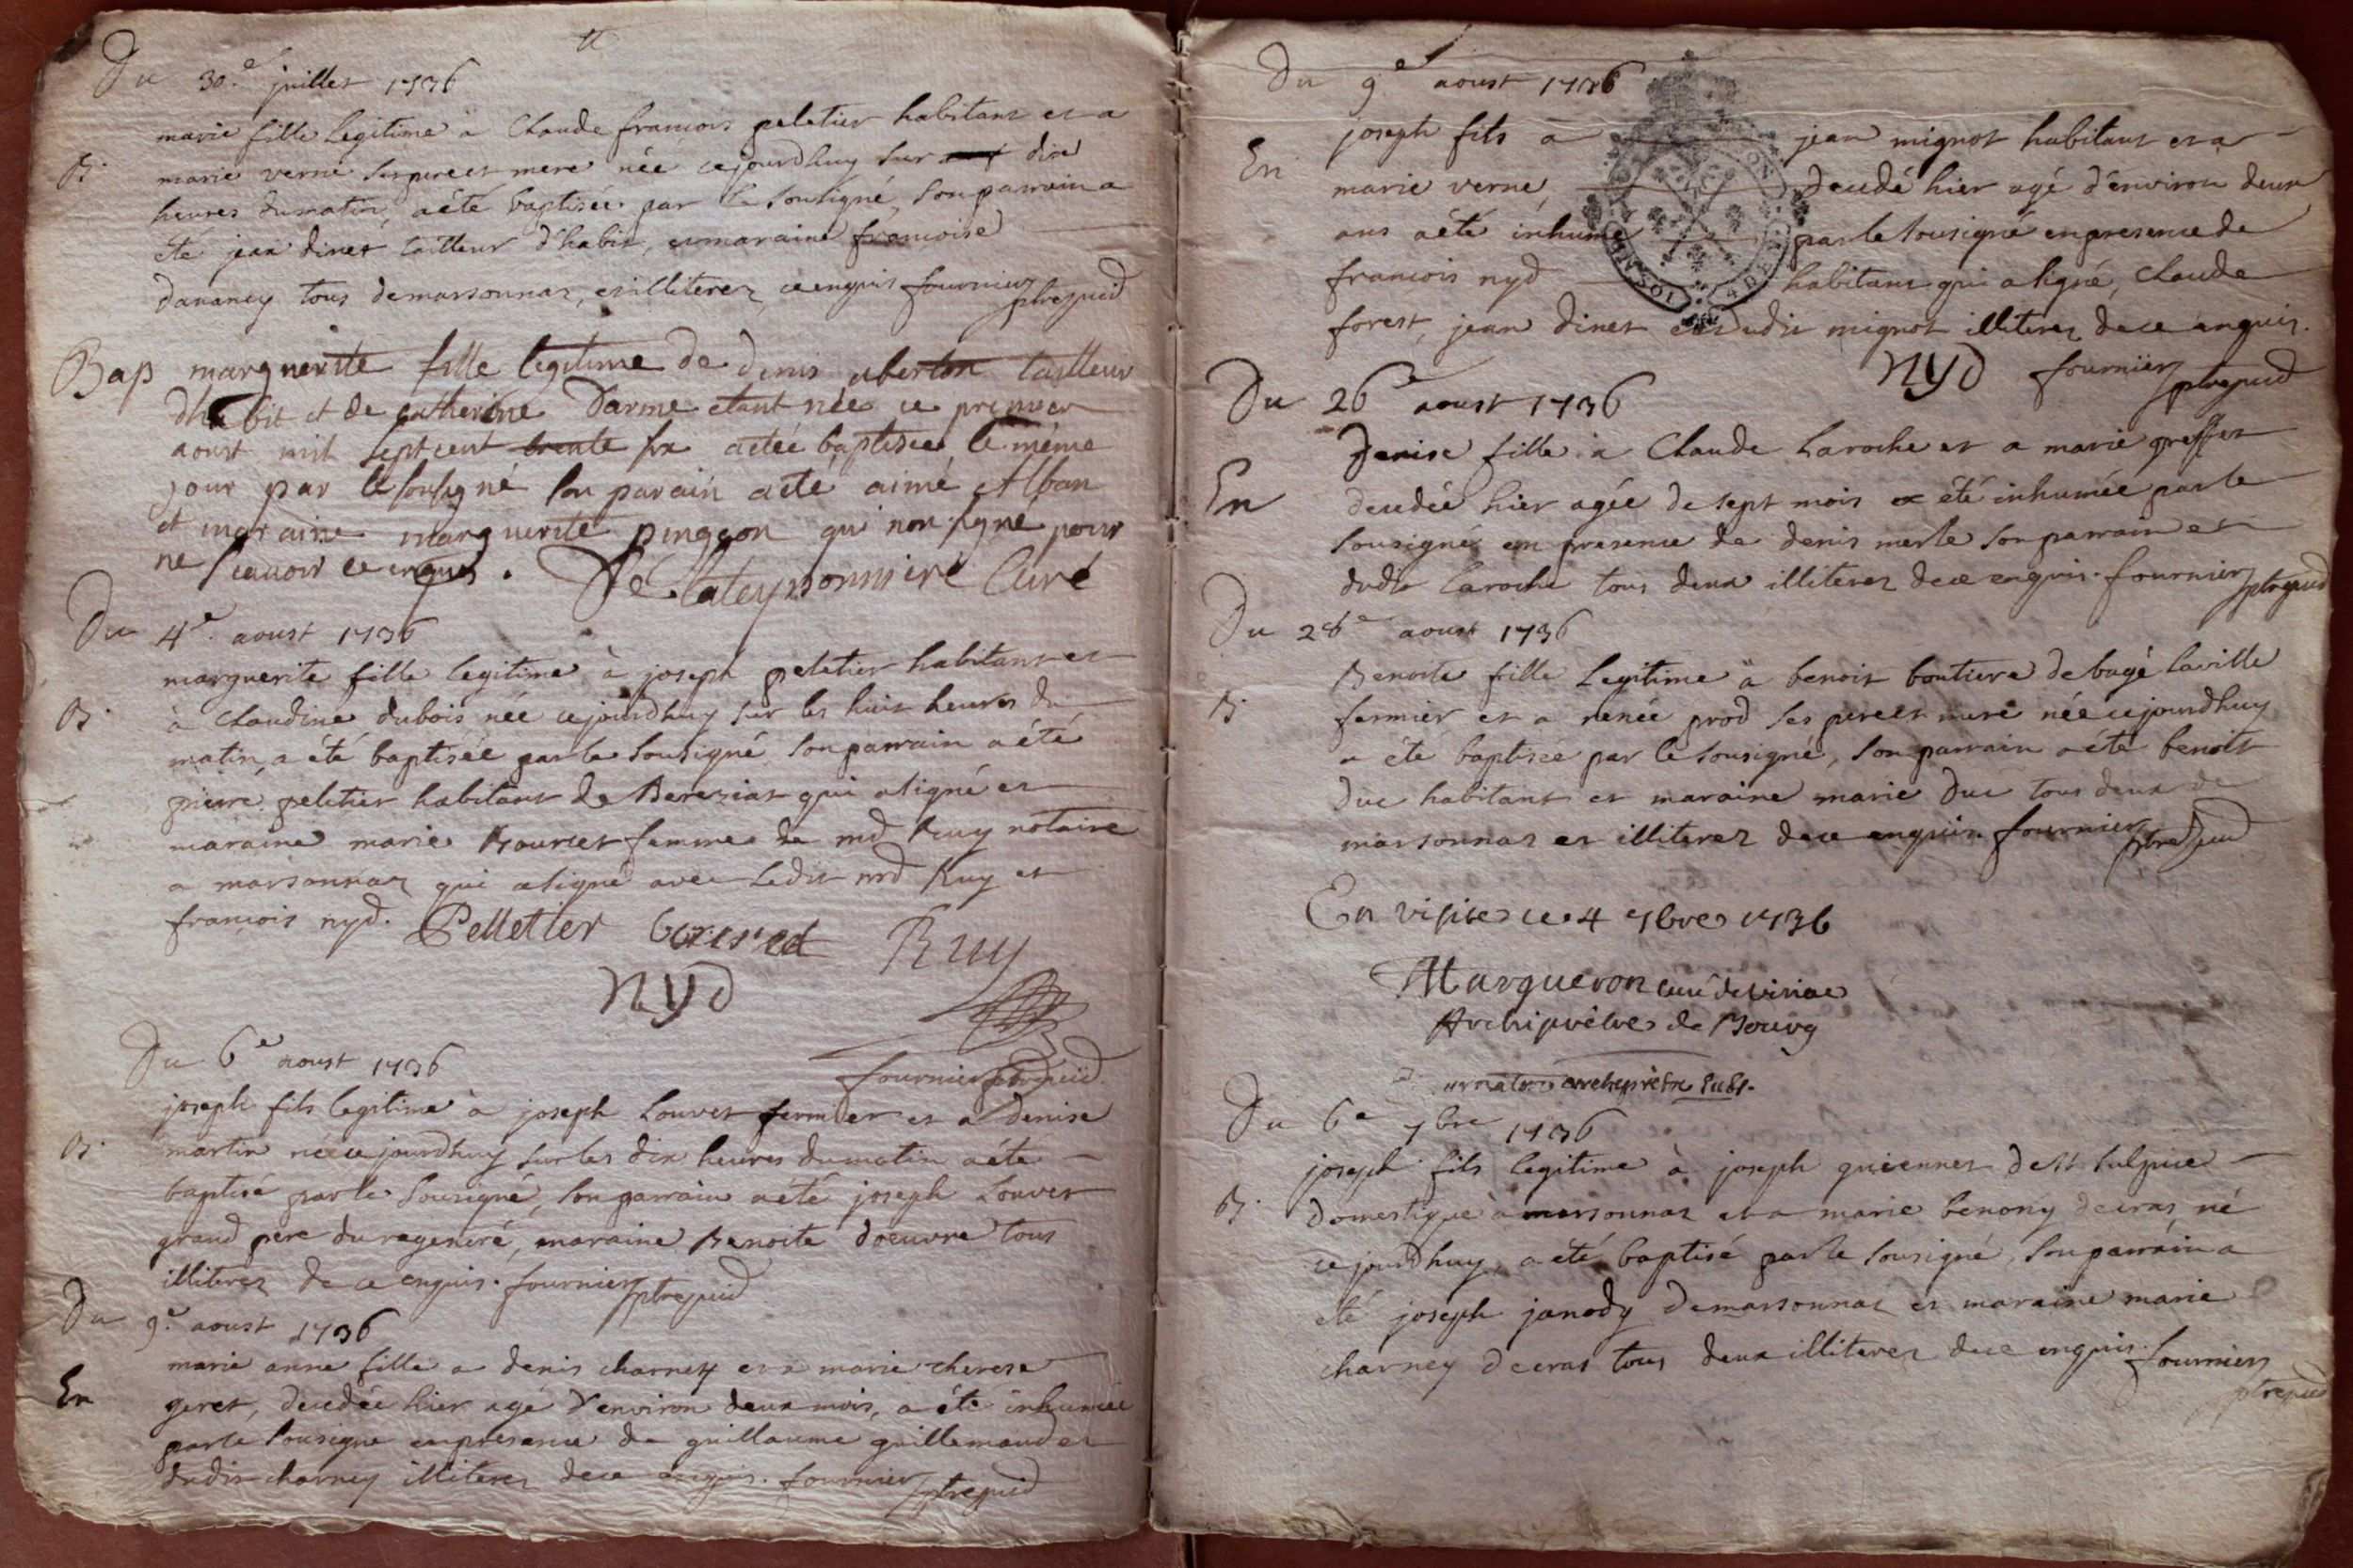 Du 30.e juillet 1736
marie fille legitime a Claude francois peletier habitant et a
B. marie verne ses pere et mere née cejourdhuy sur dix
heures du matin, a été baptisée par le sousigné, son parrain a
été jean dinet tailleur d'habit, et maraine francoise
tous de marsonnaz, et illiterez, ce enquis fournier
Bap marguerite fille legitime de denis tailleur
dhabit et de catherine Darme etant née ce premier
aoust mil sept cent trente six aetée baptisée le même
jour par le sousigné son parain aété aimé Alban
et maraine marguerite pingeon qui non signe pour
ne scavoir ce enquis. Curé
Du 4e. aoust 1736
marguerite fille legitime à joseph peletier habitant et
B. à Claudine dubois née cejourdhuy sur les huit heures du
matin, a été baptisée par le sousigné son parrain a été
pierre peletier habitant de Bereziat qui a signé et
maraine marie Bourcet femme de md Ruy notaire
a marsonnaz qui a signé avec ledit md Ruy et
francois nyd. Pelletier Ruy
nyd
fournier
Du 6e aoust 1736
joseph fils legitime à joseph Louvet fermier et a denise
B. martin né cejourdhuy sur les dix heures du matin a été
baptisé par le sousigné, son parrain a été joseph Louvet
grand pere du regeneré, maraine Benoite doeuvre tous
illiterez de ce enquis. fournier
Du 9e. aoust 1736
marie anne fille a denis charney et a marie therese
En geret, decedée hier agé d'environ deux mois, a été inhumée
par le sousigné en presence de guillaume guillemaud et
dudit charney illiterez de ce enquis. fournier
Du 9e aoust 1736
joseph fils a jean mignot habitant et a
En marie verne, decedé hier agé d'environ deux
ans a été inhumé par le sousigné en presence de
francois nyd habitant qui a signé, Claude
forest, jean dinet et dudit mignot illiterez de ce enquis.
nyd fournier
Du 26e aoust 1736
Denise fille a Claude Laroche et a marie greffet
En decedée hier agée de sept mois a été inhumée par le
sousigné en presence de denis merle son parrain et
dudit Laroche tous deux illiterez de ce enquis. fournier
Du 28e aoust 1736
Benoite fille legitime a benoit boutiere de bagé laville
B. fermier et a renée prod ses pere et mere née cejourdhuy
a été baptisée par le sousigné, son parrain a été benoit
Duc habitant et maraine marie Duc tous deux de
marsonnaz et illiterez de ce enquis. fournier
En visite ce 4 7bre 1736
Marqueron curé de viriac
Archiprêtre de Bourg
archiprêtre
Du 6e 7bre 1736
joseph fils legitime à joseph guiennet de st sulpice
B. domestique à marsonnaz et a marie benony de cras, né
cejourdhuy, a été baptisé par le sousigné, son parrain a
été joseph janody de marsonnaz et maraine marie
charney de cras tous deux illiterez de ce enquis. fournier